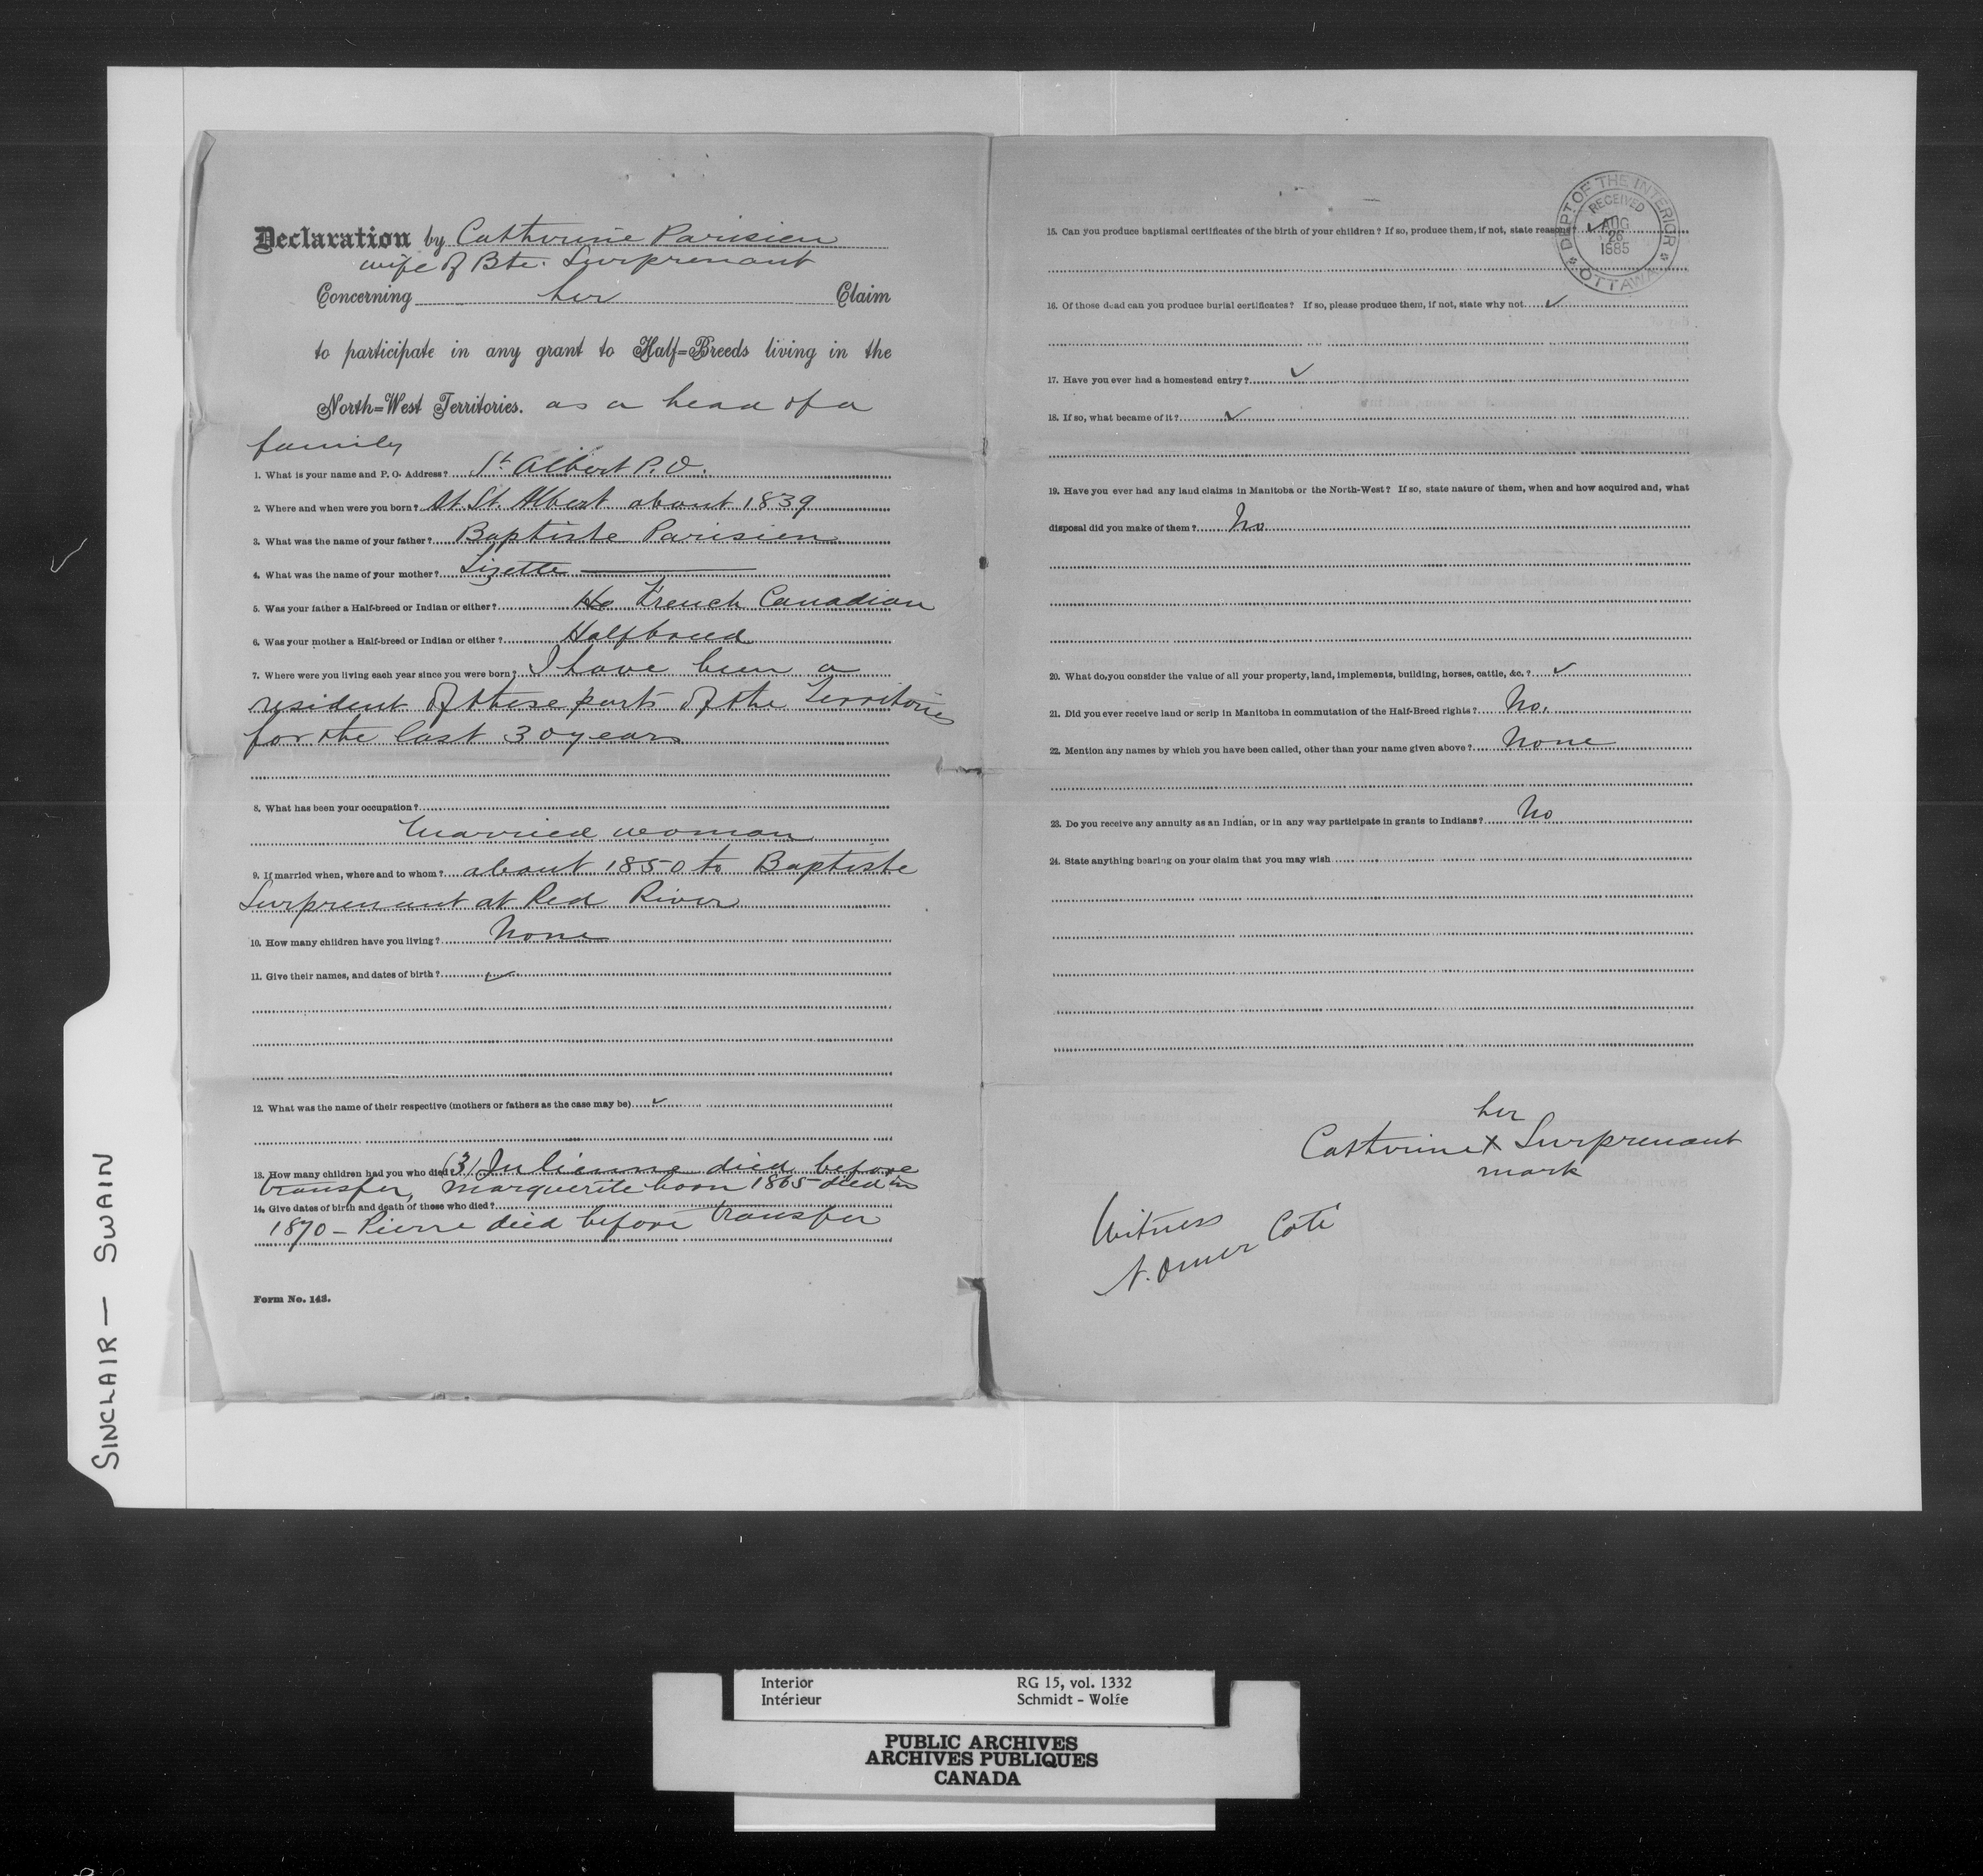 Declaration by Catherine Parisien
wife of Bte. Surprenant
Concerning her Claim
to participate in any grant to Half-Breeds living in the
North-West Territories. as a head of a
family
1. What is your name and P. O. Address? St. Albert P. O.
2. Where and when were you born? At St. Albert about 1839
3. What was the name of your father? Baptiste Parisien
4. What was the name of your mother? Lizette
5. Was your father a Half-breed or Indian or either? French Canadian
6. Was your mother a Half-breed or Indian or either? Halfbreed
7. Where were you living each year since you were born? I have been a
resident of these parts of the Territories
for the last 30 years
8. What has been your occupation?
Married woman
9. If married when, where and to whom? about 1850 to Baptiste
Surprenant at Red River
10. How many children have you living? None
11. Give their names, and dates of birth? ✓
12. What was the name of their respective (mothers or fathers as the case may be) ✓
13. How many children had you who died? (3) Julienne died before
transfer, Marguerite born 1865 died in
14. Give dates of birth and death of those who died?
1870 - Pierre died before transfer
Form No. 143.
DEPT OF THE INTERIOR
RECEIVED
AUG
26
1885
OTTAWA
15. Can you produce baptismal certificates of the birth of your children? If so, produce them, if not, state reasons? ✓
16. Of those dead can you produce burial certificates? If so, please produce them, if not, state why not ✓
17. Have you ever had a homestead entry? ✓
18. If so, what became of it? ✓
19. Have you ever had any land claims in Manitoba or the North-West? If so, state nature of them, when and how acquired and, what
disposal did you make of them? No
20. What do you consider the value of all your property, land, implements, building, horses, cattle, &c.? ✓
21. Did you ever receive land or scrip in Manitoba in commutation of the Half-Breed rights? No.
22. Mention any names by which you have been called, other than your name given above? None
23. Do you receive any annuity as an Indian, or in any way participate in grants to Indians? No
24. State anything bearing on your claim that you may wish
her
Catherine X Surprenant
mark
Witness
N. Omer Coté
SINCLAIR — SWAIN
Interior RG 15, vol. 1332
Intérieur Schmidt - Wolfe
PUBLIC ARCHIVES
ARCHIVES PUBLIQUES
CANADA